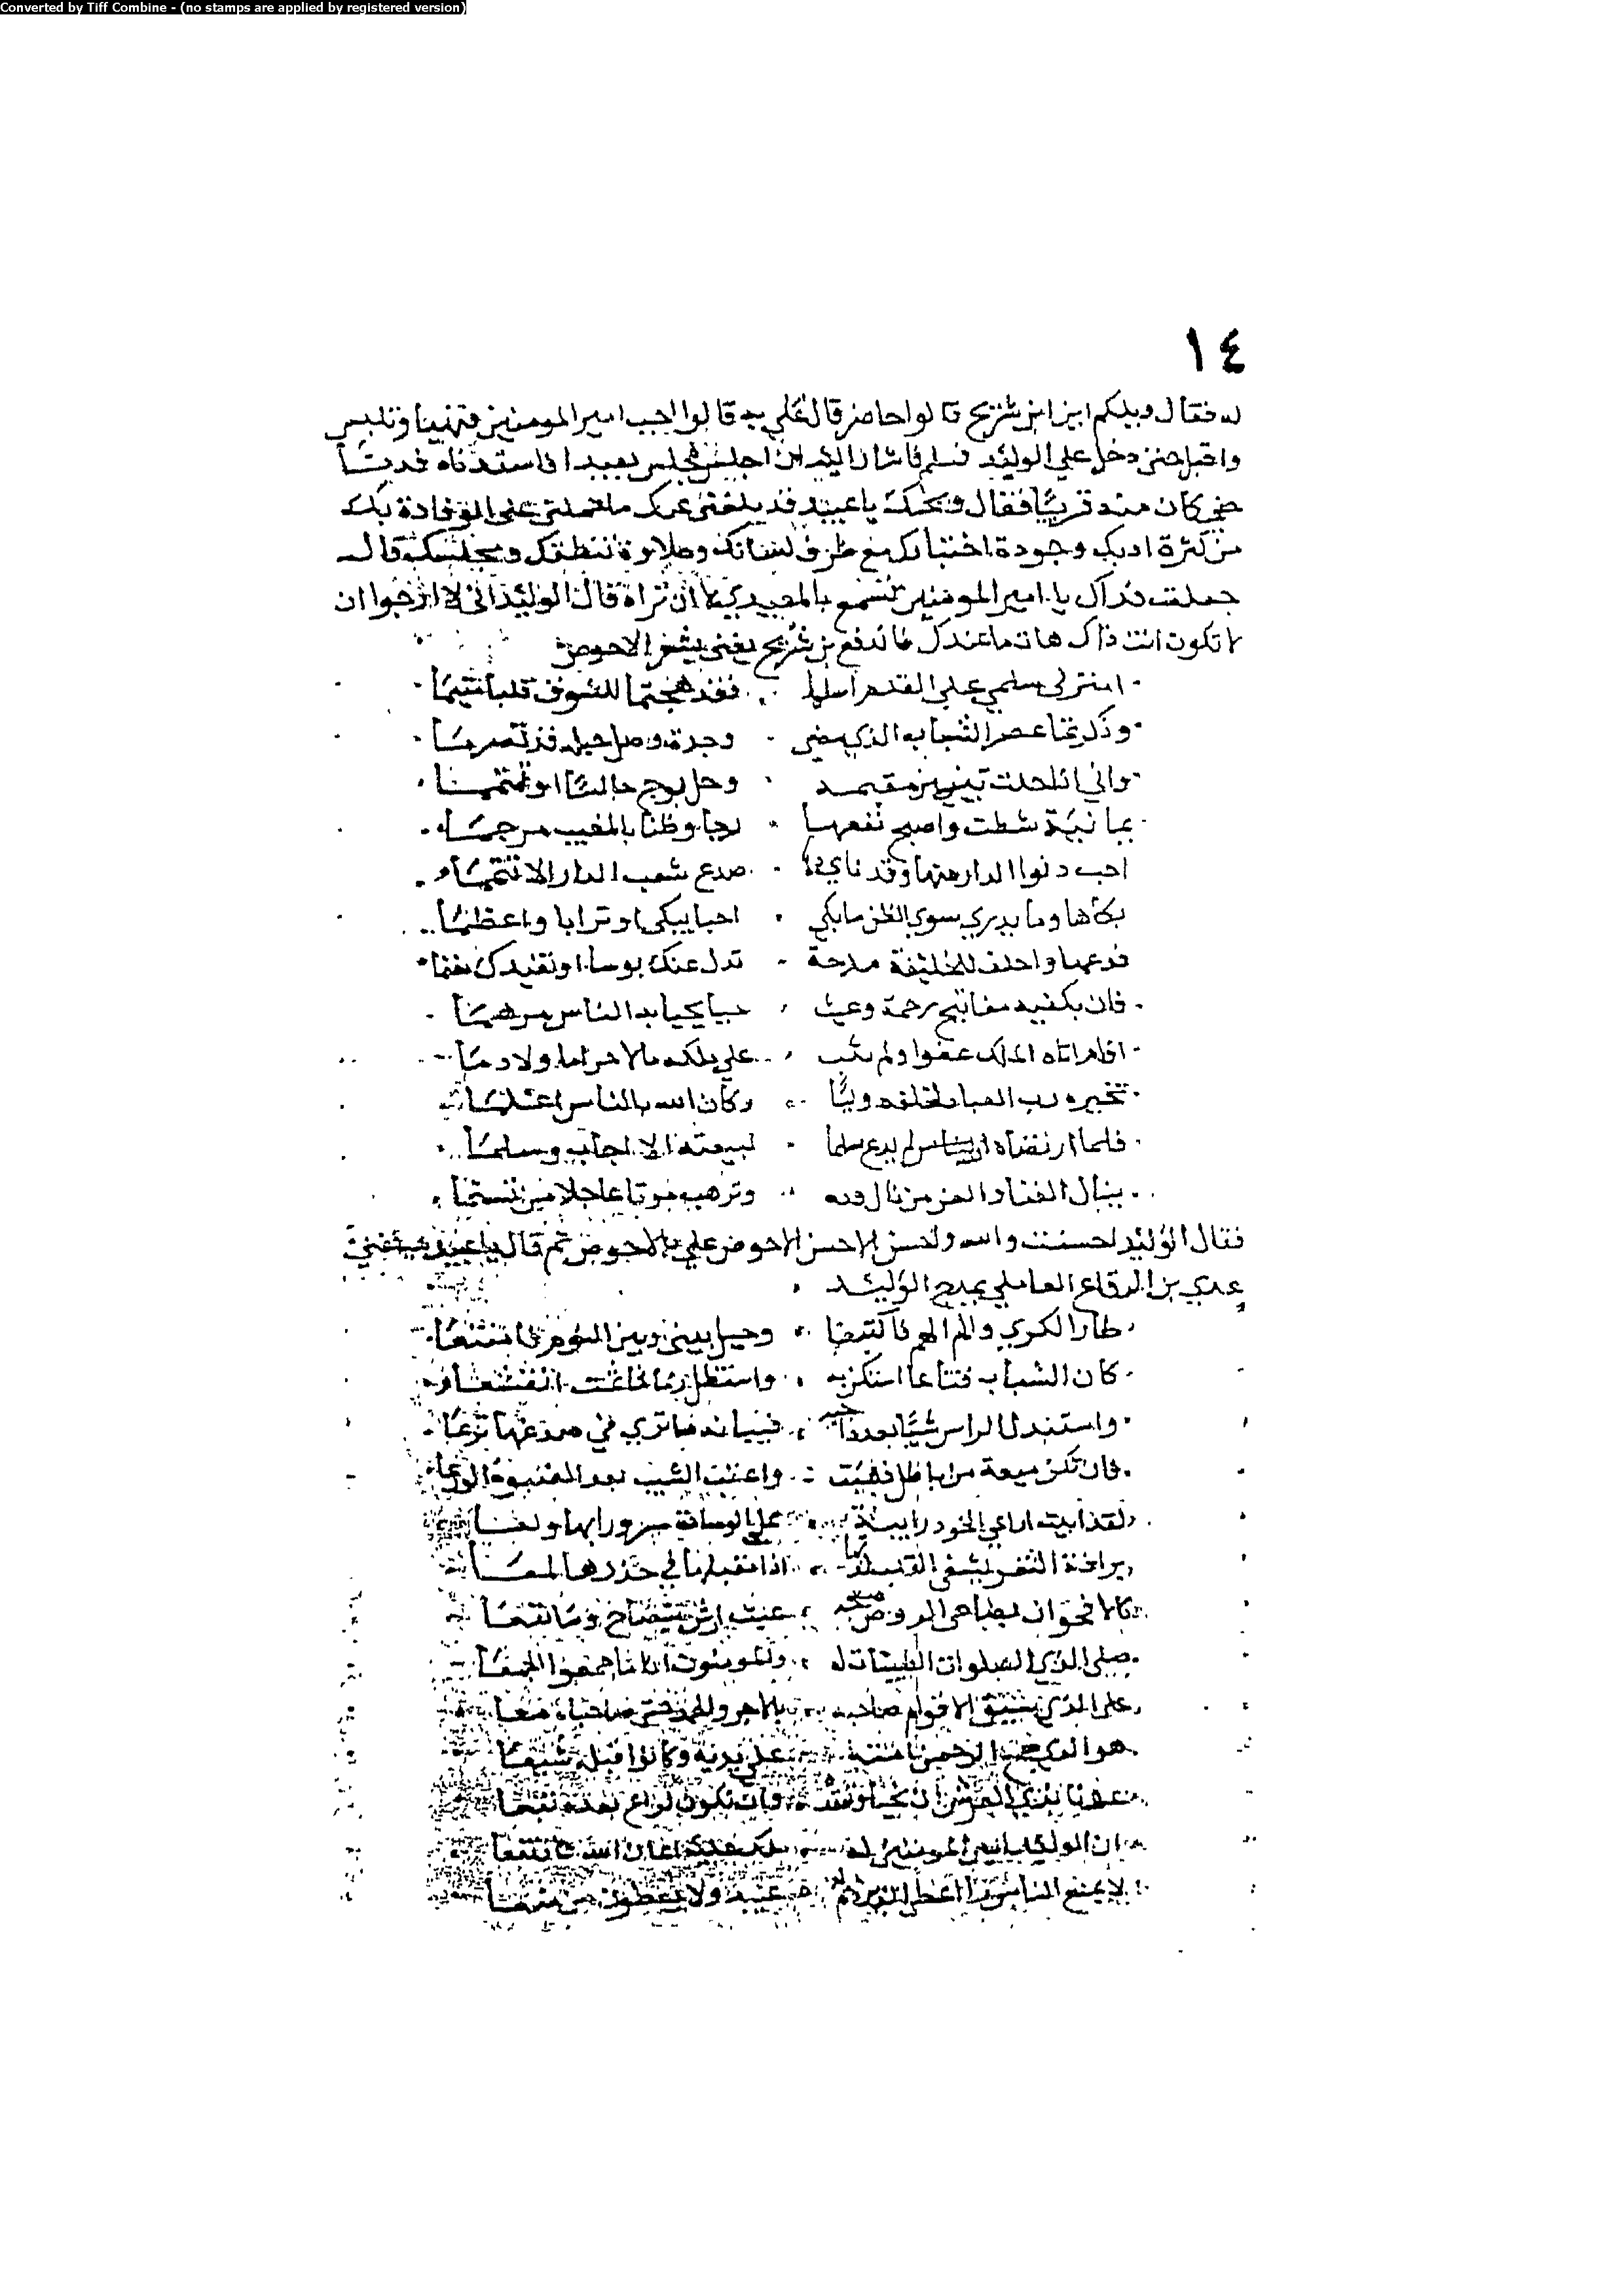 Converted by Tiff Combine - (no stamps are applied by registered version)
١٤
له فقال ويلكم اين ابن شريح قالوا حاضر قال علي به قالوا اجب امير المومنين فتهيا وتلبس
واقبل حتى دخل علي الوليد فسلم فاشار اليه ان اجلس فجلس بعيدا فاستدناه فدنا
حتي كان منه قريبا فقال ويحك يا عبيد قد بلغني عنك ما حملني على الوفادة بك
من كثرة ادبك وجودة اختيارك مع ظرف لسانك وحلاوة منطقك ومجلسك قال
جعلت فداك يا امير المومنين تسمع بالمعيدي لا ان تراه قال الوليد اني لا ارجوا ان
لا تكون انت ذاك هات ما عندك فاندفع بن شريح يغني بشعر الاحوص
امنزلتي سلمي علي القدم اسلما فقد هجتما للشوق قلبا متيما
وذكرتما عصر الشباب الذي مضي وجدة وصل حبله قد تصرما
واني اذا حلت ببيش مقيمة وحل بوج جالسا او تتهما
يمانية شطت واصبح نفعها رجا وظنا بالمغيب مرجما
احب دنوا الدار منها وقد ناي صدع شعب الدار الا تثلما
بكاها وما يدري سوي الظن ما بكي احيا يبكي او ترابا واعظما
فدعها واخلف للخليفة مدحة تزل عنك بوسا او تفيدك مغنما
فان بكفيه مفاتيح رحمة وغيث حيا يحيا به الناس مرهما
امام اتاه الملك عفوا ولم يثب علي ملكه مالا حراما ولا دما
تخيره رب العباد لخلقه وليا وكان الله بالناس اعلما
فلما ارتضاه الناس لم يدع مسلما لبيعته الا اجاب وسلما
ينال الغنا والعز من نال وده وترهب موتا عاجلا من تسنما
فقال الوليد احسنت والله واحسن الاحوص علي بالاحوص ثم قال يا عبيد هيه فغني
عدي بن الرقاع العاملي يمدح الوليد
طار الكري والم الهم فاكتنعا وحيل بيني وبين النوم فامتنعا
كان الشباب قناعا استكن به واستظل زمانا ثمت انقشعا
واستبدل الراس شيبا بعد فينانه ما تري في صدغها نزعا
فان تكن ميعة من باطل ذهبت واعقب الشيب بعد الصبوة الورعا
لقد ابيت اراعي الخود راقدة علي الوسائد مسرورا بها ولعا
براقة الثغر يشفي القلب لذتها اذا مقبلها في خدرها لمعا
كالاقحوان بضاحي الروض صبحه غيث ارش بتنضاح وما نقعا
صلى الذي الصلوات الطيبات له والمومنون اذا ما جمعوا الجمعا
على الذي سبق الاقوام ضاحية بالاجر والحمد حتى صاحباه معا
هو الذي جمع الرحمن امته على يديه وكانوا قبله شيعا
عذنا بذي العرش ان نحيا ونفقده وان نكون لراع بعده تبعا
ان الوليد امير المومنين له ملك عليه اعان الله فارتفعا
لا يمنع الناس ما اعطي الذين هم له عبيد ولا يعطون من منعا